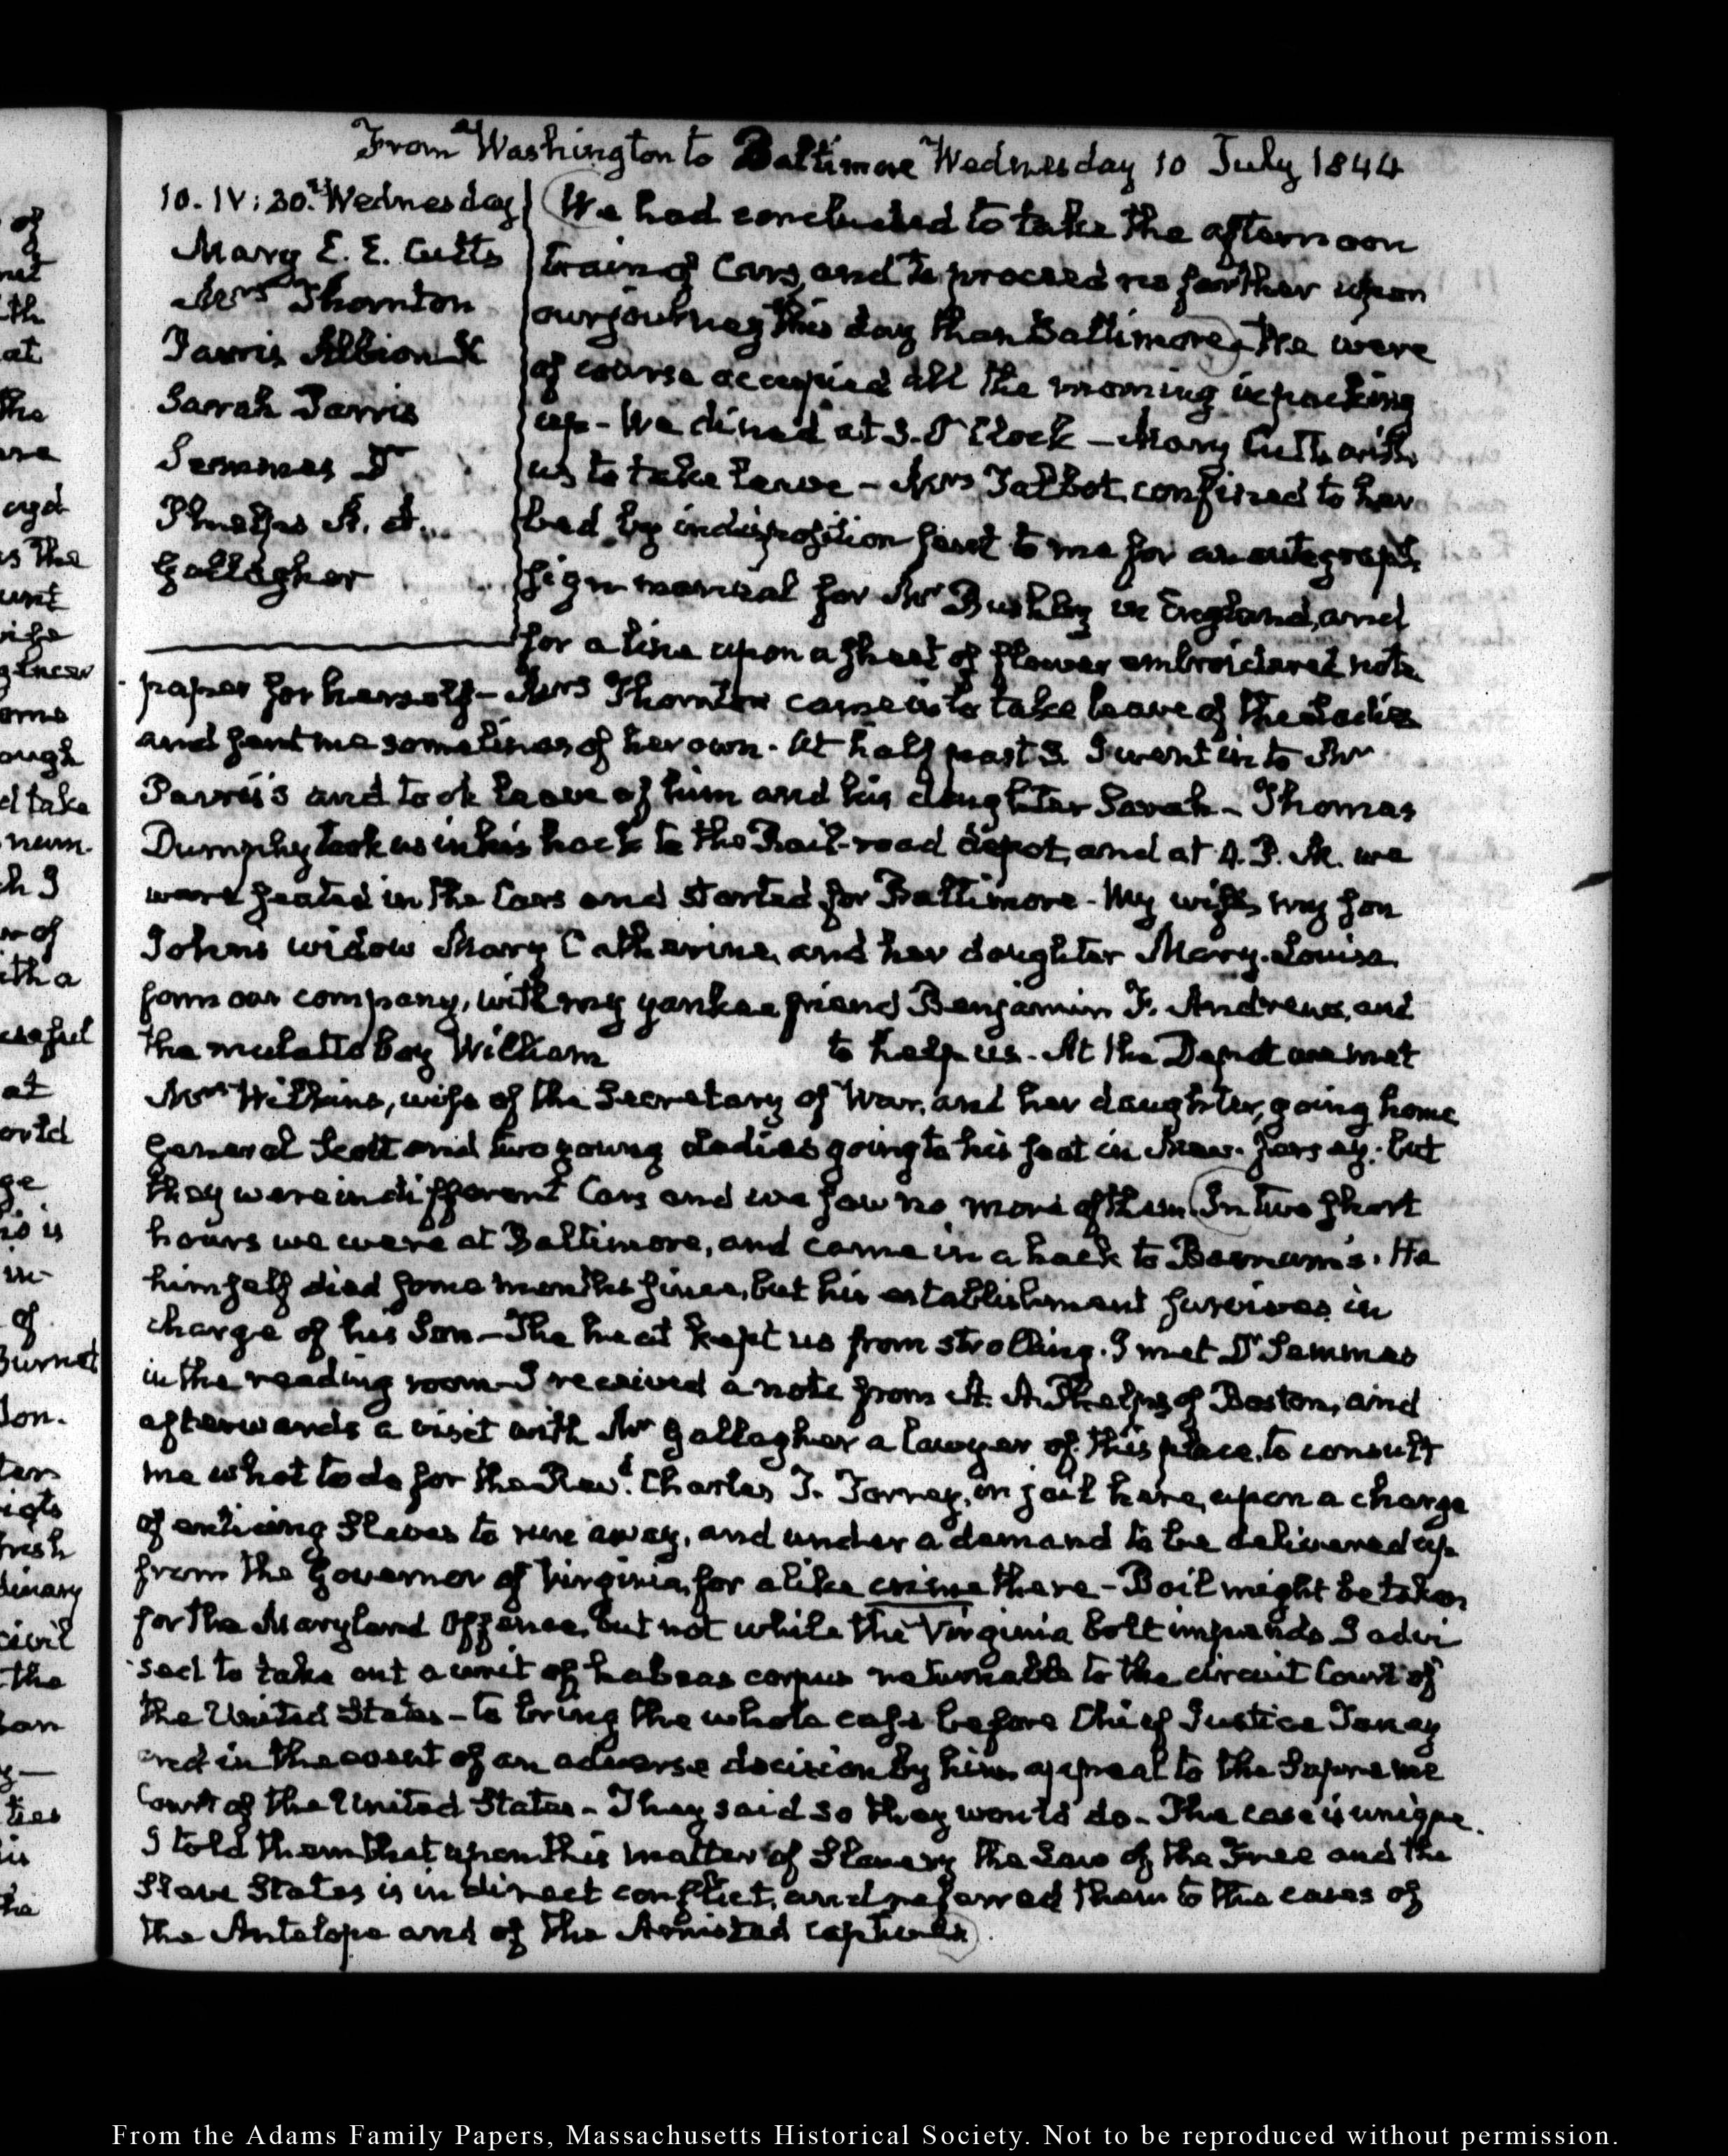 From Washington to Baltimore Wednesday 10 July 1844
10. IV:30. Wednesday
Mary E. E. Cutts
Mrs Thornton
Parris Albion K
Sarah Parris
Semmes Dr
Phelps A. A.
Gallagher
We had concluded to take the afternoon
train of Cars, and to proceed no farther upon
our journey this day than Baltimore. We were
of course occupied all the morning in packing
up - We dined at 3. O'Clock - Mary Cutts with
us to take leave - Mrs Talbot, confined to her
bed by indisposition sent to me for an autograph
sign manual for Mr Bushby in England, and
for a line upon a sheet of flower embroidered note
paper for herself - Mrs Thornton came in to take leave of the Ladies
and sent me some lines of her own. At half past 3. I went in to Mr
Parris's and took leave of him and his daughter Sarah - Thomas
Dumphy took us in his hack to the Rail-road depot, and at 4. P. M. we
were seated in the Cars and started for Baltimore - My wife, my son
Johns widow Mary Catherine, and her daughter Mary-Louisa,
form our company, with my yankee friend Benjamin F. Andrews, and
the mulatto boy William to help us. At the Depot we met
Mrs Wilkins, wife of the Secretary of War, and her daughter, going home
General Scott and two young Ladies going to his seat in New-Jersey. but
they were in different Cars and we saw no more of them In two short
hours we were at Baltimore, and came in a hack to Barnum's. He
himself died some months since, but his establishment survives, in
charge of his Son - The heat kept us from strolling. I met Dr Semmes
in the reading room - I received a note from A. A. Phelps of Boston, and
afterwards a visit with Mr Gallagher a lawyer of this place, to consult
me what to do for the Revd. Charles T. Torrey, in jail here, upon a charge
of enticing Slaves to run away, and under a demand to be delivered up
from the Governor of Virginia, for a like crime there - Bail might be taken
for the Maryland Offence, but not while the Virginia bolt impends. I advi
sed to take out a writ of habeas corpus returnable to the circuit Court of
the United States - to bring the whole case before Chief Justice Taney
and in the event of an adverse decision by him appeal to the Supreme
Court of the United States - They said so they would do - The case is unique.
I told them that upon this matter of Slavery the Law of the Free and the
Slave States is in direct conflict, and referred them to the cases of
the Antelope and of the Amistad captives
From the Adams Family Papers, Massachusetts Historical Society. Not to be reproduced without permission.